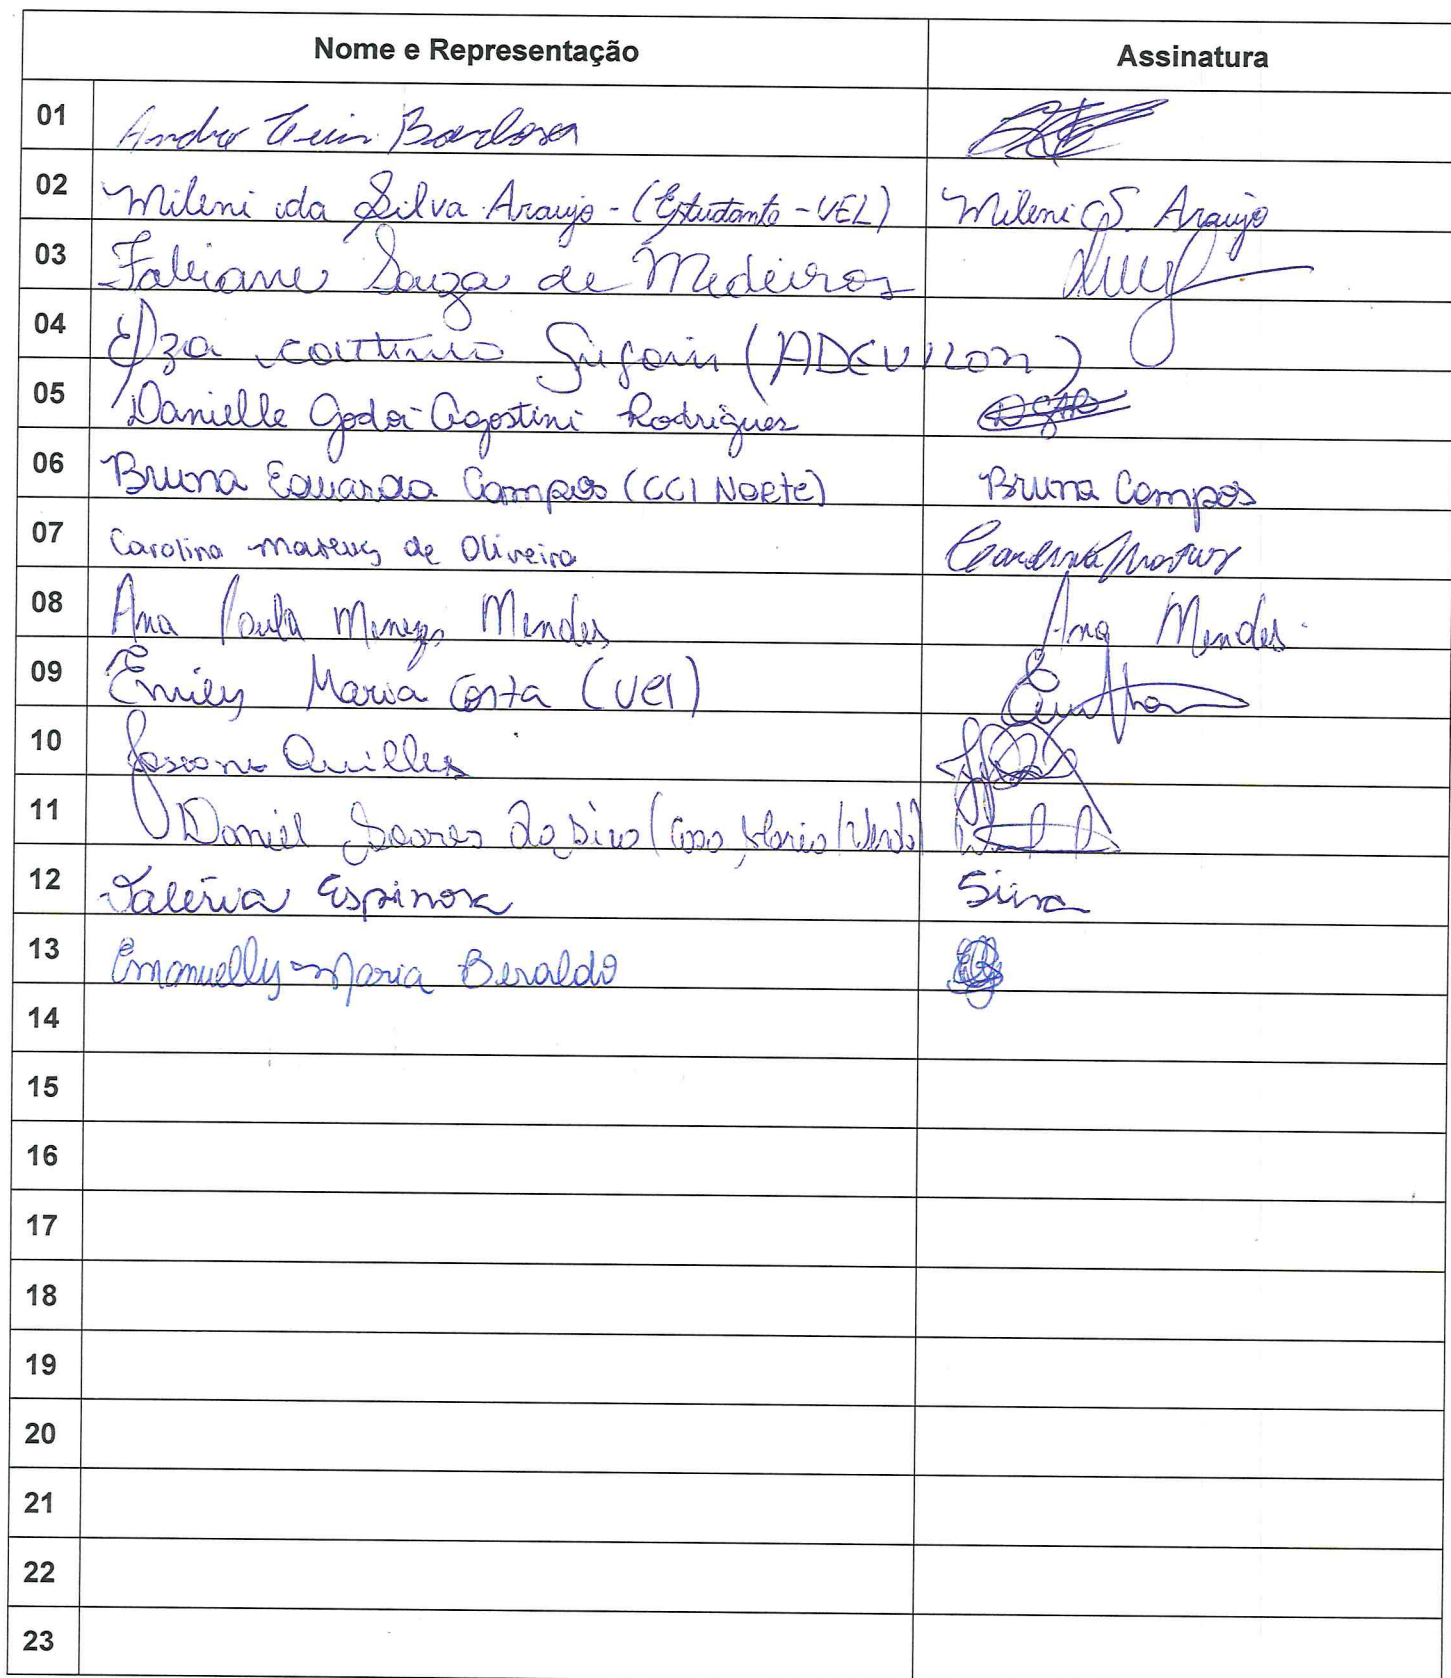 Nome e Representação Assinatura
01 Andre Barbosa
02 Mileni da Silva Araujo - (Estudante - UEL) Mileni S. Araujo
03 Fabiane Souza de Medeiros
04 Elza (ADEVILON)
05 Danielle Godoi Agostini Rodrigues
06 Bruna Eduarda Campos (CCI Norte) Bruna Campos
07 Carolina Mateus de Oliveira Carolina Mateus
08 Ana Paula Menezes Mendes Ana Mendes
09 Emily Maria Costa (UEL)
10 Josiane Quilles
11 Daniel Soares
12 Valéria Espinosa
13 Emanuelly Maria Beraldo
14
15
16
17
18
19
20
21
22
23